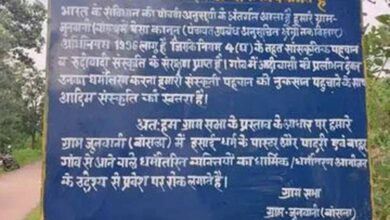 भारत के संविधान की पांचवी अनुसूची के अंतर्गत आता है हमारे ग्राम-
जुनवानी
अधिनियम 1996 लागू है जिसके नियम 4 (घ) के तहत सांस्कृतिक पहचान
व रूढ़ीवादी संस्कृति के संरक्षण प्राप्त है। गांव में आदिवासी को प्रलोभन देकर
उनका धर्मांतरण करना हमारी संस्कृति पहचान को नुकसान पहुंचाने के साथ
आदिम संस्कृति को खतरा है।
अतः हम ग्राम सभा के प्रस्ताव के आधार पर हमारे
ग्राम जुनवानी में ईसाई धर्म के पास्टर और पादरी एवं बाहर
गांव से आने वाले धर्मांतरित व्यक्तियों का धार्मिक धर्मांतरण आयोजन
के उद्देश्य से प्रवेश पर रोक लगाते है।
ग्राम सभा
ग्राम-जुनवानी